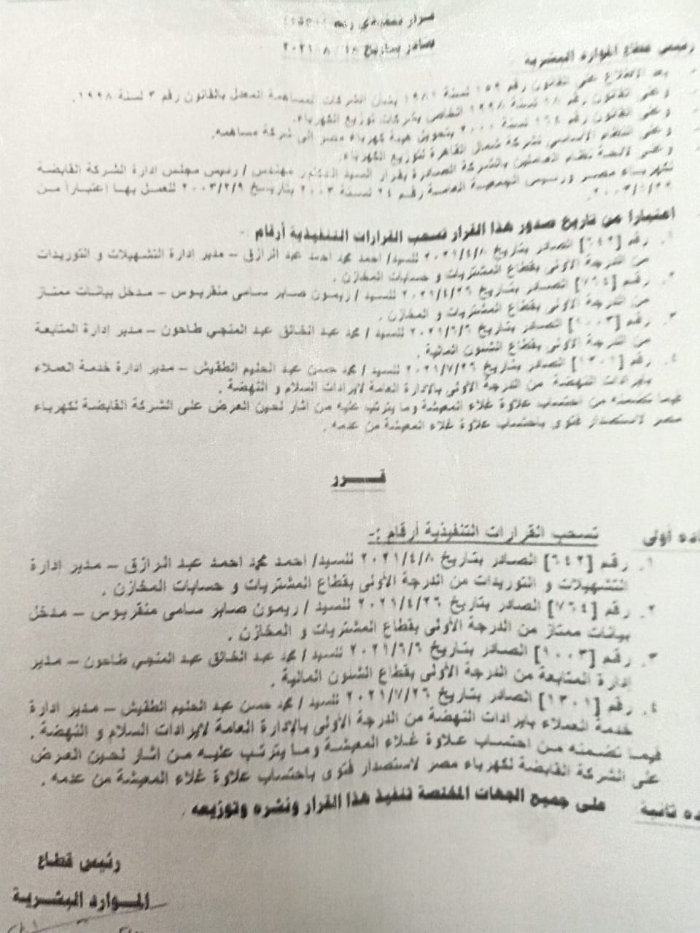 قرار تنفيذي رقم
صادر بتاريخ ١٨ / ٨ / ٢٠٢١
رئيس قطاع الموارد البشرية
بعد الاطلاع على القانون رقم ١٥٩ لسنة ١٩٨١ بشأن الشركات المساهمة المعدل بالقانون رقم ٣ لسنة ١٩٩٨.
وعلى القانون رقم ١٨ لسنة ١٩٩٨ الخاص بشركات توزيع الكهرباء.
وعلى القانون رقم ١٦٤ لسنة ٢٠٠٠ بتحويل هيئة كهرباء مصر إلى شركة مساهمه.
وعلى النظام الأساسي لشركة شمال القاهرة لتوزيع الكهرباء.
وعلى لائحة نظام العاملين بالشركة الصادرة بقرار السيد الدكتور مهندس / رئيس مجلس إدارة الشركة القابضة
لكهرباء مصر ورئيس الجمعية العامة رقم ٢٤ لسنة ٢٠٠٣ بتاريخ ٢٠٠٣/٢/٩ للعمل بها اعتباراً من
اعتباراً من تاريخ صدور هذا القرار تسحب القرارات التنفيذية أرقام :-
١. رقم [٦٤٢] الصادر بتاريخ ٢٠٢١/٤/٨ للسيد/ احمد محمد احمد عبد الرازق – مدير إدارة التشهيلات و التوريدات
من الدرجة الأولى بقطاع المشتريات و حسابات المخازن .
٢. رقم [٧٦٤] الصادر بتاريخ ٢٠٢١/٤/٢٦ للسيد / ريمون صابر سامى منقريوس – مدخل بيانات ممتاز
من الدرجة الأولى بقطاع المشتريات و المخازن .
٣. رقم [١٠٠٣] الصادر بتاريخ ٢٠٢١/٦/٦ للسيد / محمد عبد الخالق عبد المنجي طاحون – مدير إدارة المتابعة
من الدرجة الأولى بقطاع الشئون المالية .
٤. رقم [١٣٠١] الصادر بتاريخ ٢٠٢١/٧/٢٦ للسيد / محمد حسن عبد الحليم الطقيش – مدير إدارة خدمة العملاء
بإيرادات النهضة من الدرجة الأولى بالإدارة العامة لإيرادات السلام و النهضة .
فيما تضمنه من احتساب علاوة غلاء المعيشة وما يترتب عليه من اثار لحين العرض على الشركة القابضة لكهرباء
مصر لاستصدار فتوى باحتساب علاوة غلاء المعيشة من عدمه .
قـــــرر
ماده أولى تسحب القرارات التنفيذية أرقام :-
١. رقم [٦٤٢] الصادر بتاريخ ٢٠٢١/٤/٨ للسيد/ احمد محمد احمد عبد الرازق – مدير إدارة
التشهيلات و التوريدات من الدرجة الأولى بقطاع المشتريات و حسابات المخازن .
٢. رقم [٧٦٤] الصادر بتاريخ ٢٠٢١/٤/٢٦ للسيد / ريمون صابر سامى منقريوس – مدخل
بيانات ممتاز من الدرجة الأولى بقطاع المشتريات و المخازن .
٣. رقم [١٠٠٣] الصادر بتاريخ ٢٠٢١/٦/٦ للسيد / محمد عبد الخالق عبد المنجي طاحون – مدير
إدارة المتابعة من الدرجة الأولى بقطاع الشئون المالية .
٤. رقم [١٣٠١] الصادر بتاريخ ٢٠٢١/٧/٢٦ للسيد / محمد حسن عبد الحليم الطقيش – مدير إدارة
خدمة العملاء بإيرادات النهضة من الدرجة الأولى بالإدارة العامة لإيرادات السلام و النهضة .
فيما تضمنه من احتساب علاوة غلاء المعيشة وما يترتب عليه من اثار لحين العرض
على الشركة القابضة لكهرباء مصر لاستصدار فتوى باحتساب علاوة غلاء المعيشة من عدمه .
ماده ثانية على جميع الجهات المختصة تنفيذ هذا القرار ونشره وتوزيعه .
رئيس قطاع
الموارد البشرية